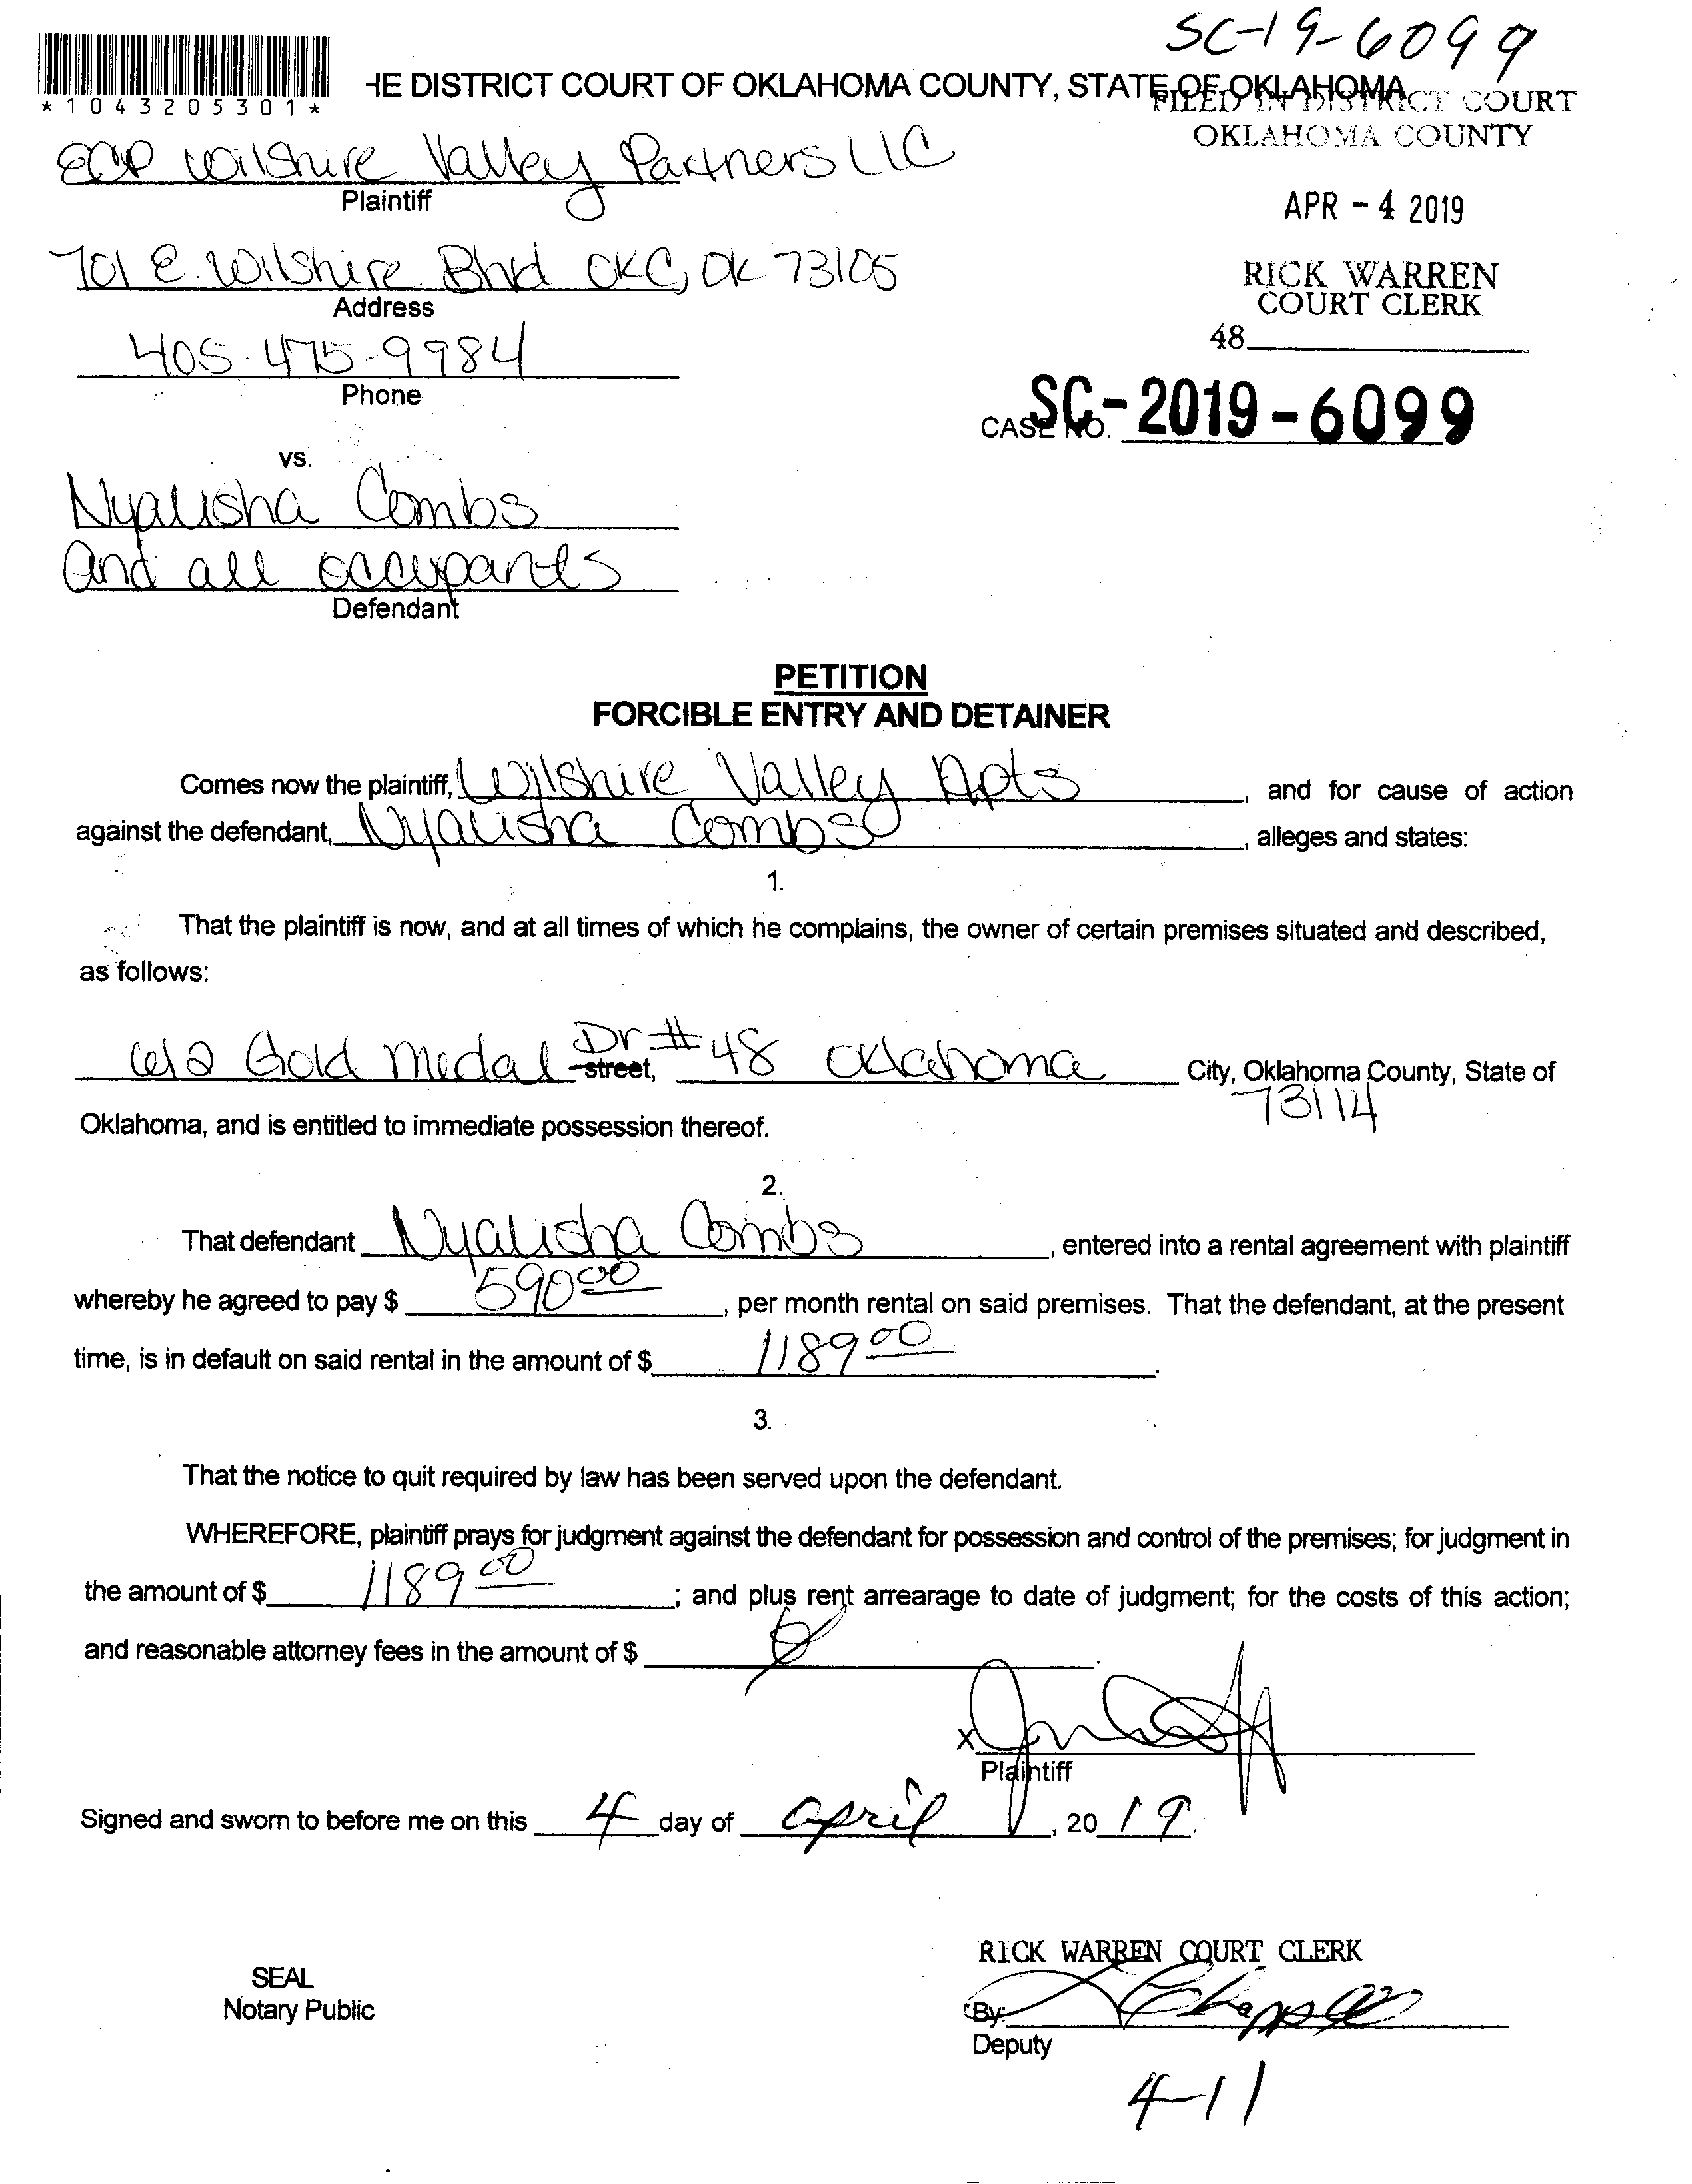 SC-19-6099
*1043205301*
HE DISTRICT COURT OF OKLAHOMA COUNTY, STATE OF OKLAHOMA
FILED IN DISTRICT COURT
OKLAHOMA COUNTY
ECP Wilshire Valley Partners LLC
Plaintiff
APR - 4 2019
701 E. Wilshire Blvd OKC, OK 73105
Address
RICK WARREN
COURT CLERK
405-475-9984
48
Phone
CASE NO. SC-2019-6099
vs.
Nyausha Combs
and all occupants
Defendant
PETITION
FORCIBLE ENTRY AND DETAINER
Comes now the plaintiff, Wilshire Valley Apts, and for cause of action
against the defendant, Nyausha Combs, alleges and states:
1.
That the plaintiff is now, and at all times of which he complains, the owner of certain premises situated and described,
as follows:
612 Gold Medal Dr street, #48 Oklahoma City, Oklahoma County, State of
73114
Oklahoma, and is entitled to immediate possession thereof.
2.
That defendant Nyausha Combs, entered into a rental agreement with plaintiff
whereby he agreed to pay $ 590.00, per month rental on said premises. That the defendant, at the present
time, is in default on said rental in the amount of $ 1189.00.
3.
That the notice to quit required by law has been served upon the defendant.
WHEREFORE, plaintiff prays for judgment against the defendant for possession and control of the premises; for judgment in
the amount of $ 1189.00; and plus rent arrearage to date of judgment; for the costs of this action;
and reasonable attorney fees in the amount of $
x
Plaintiff
Signed and sworn to before me on this 4 day of April, 2019.
RICK WARREN COURT CLERK
SEAL
Notary Public
By:
Deputy
4-11